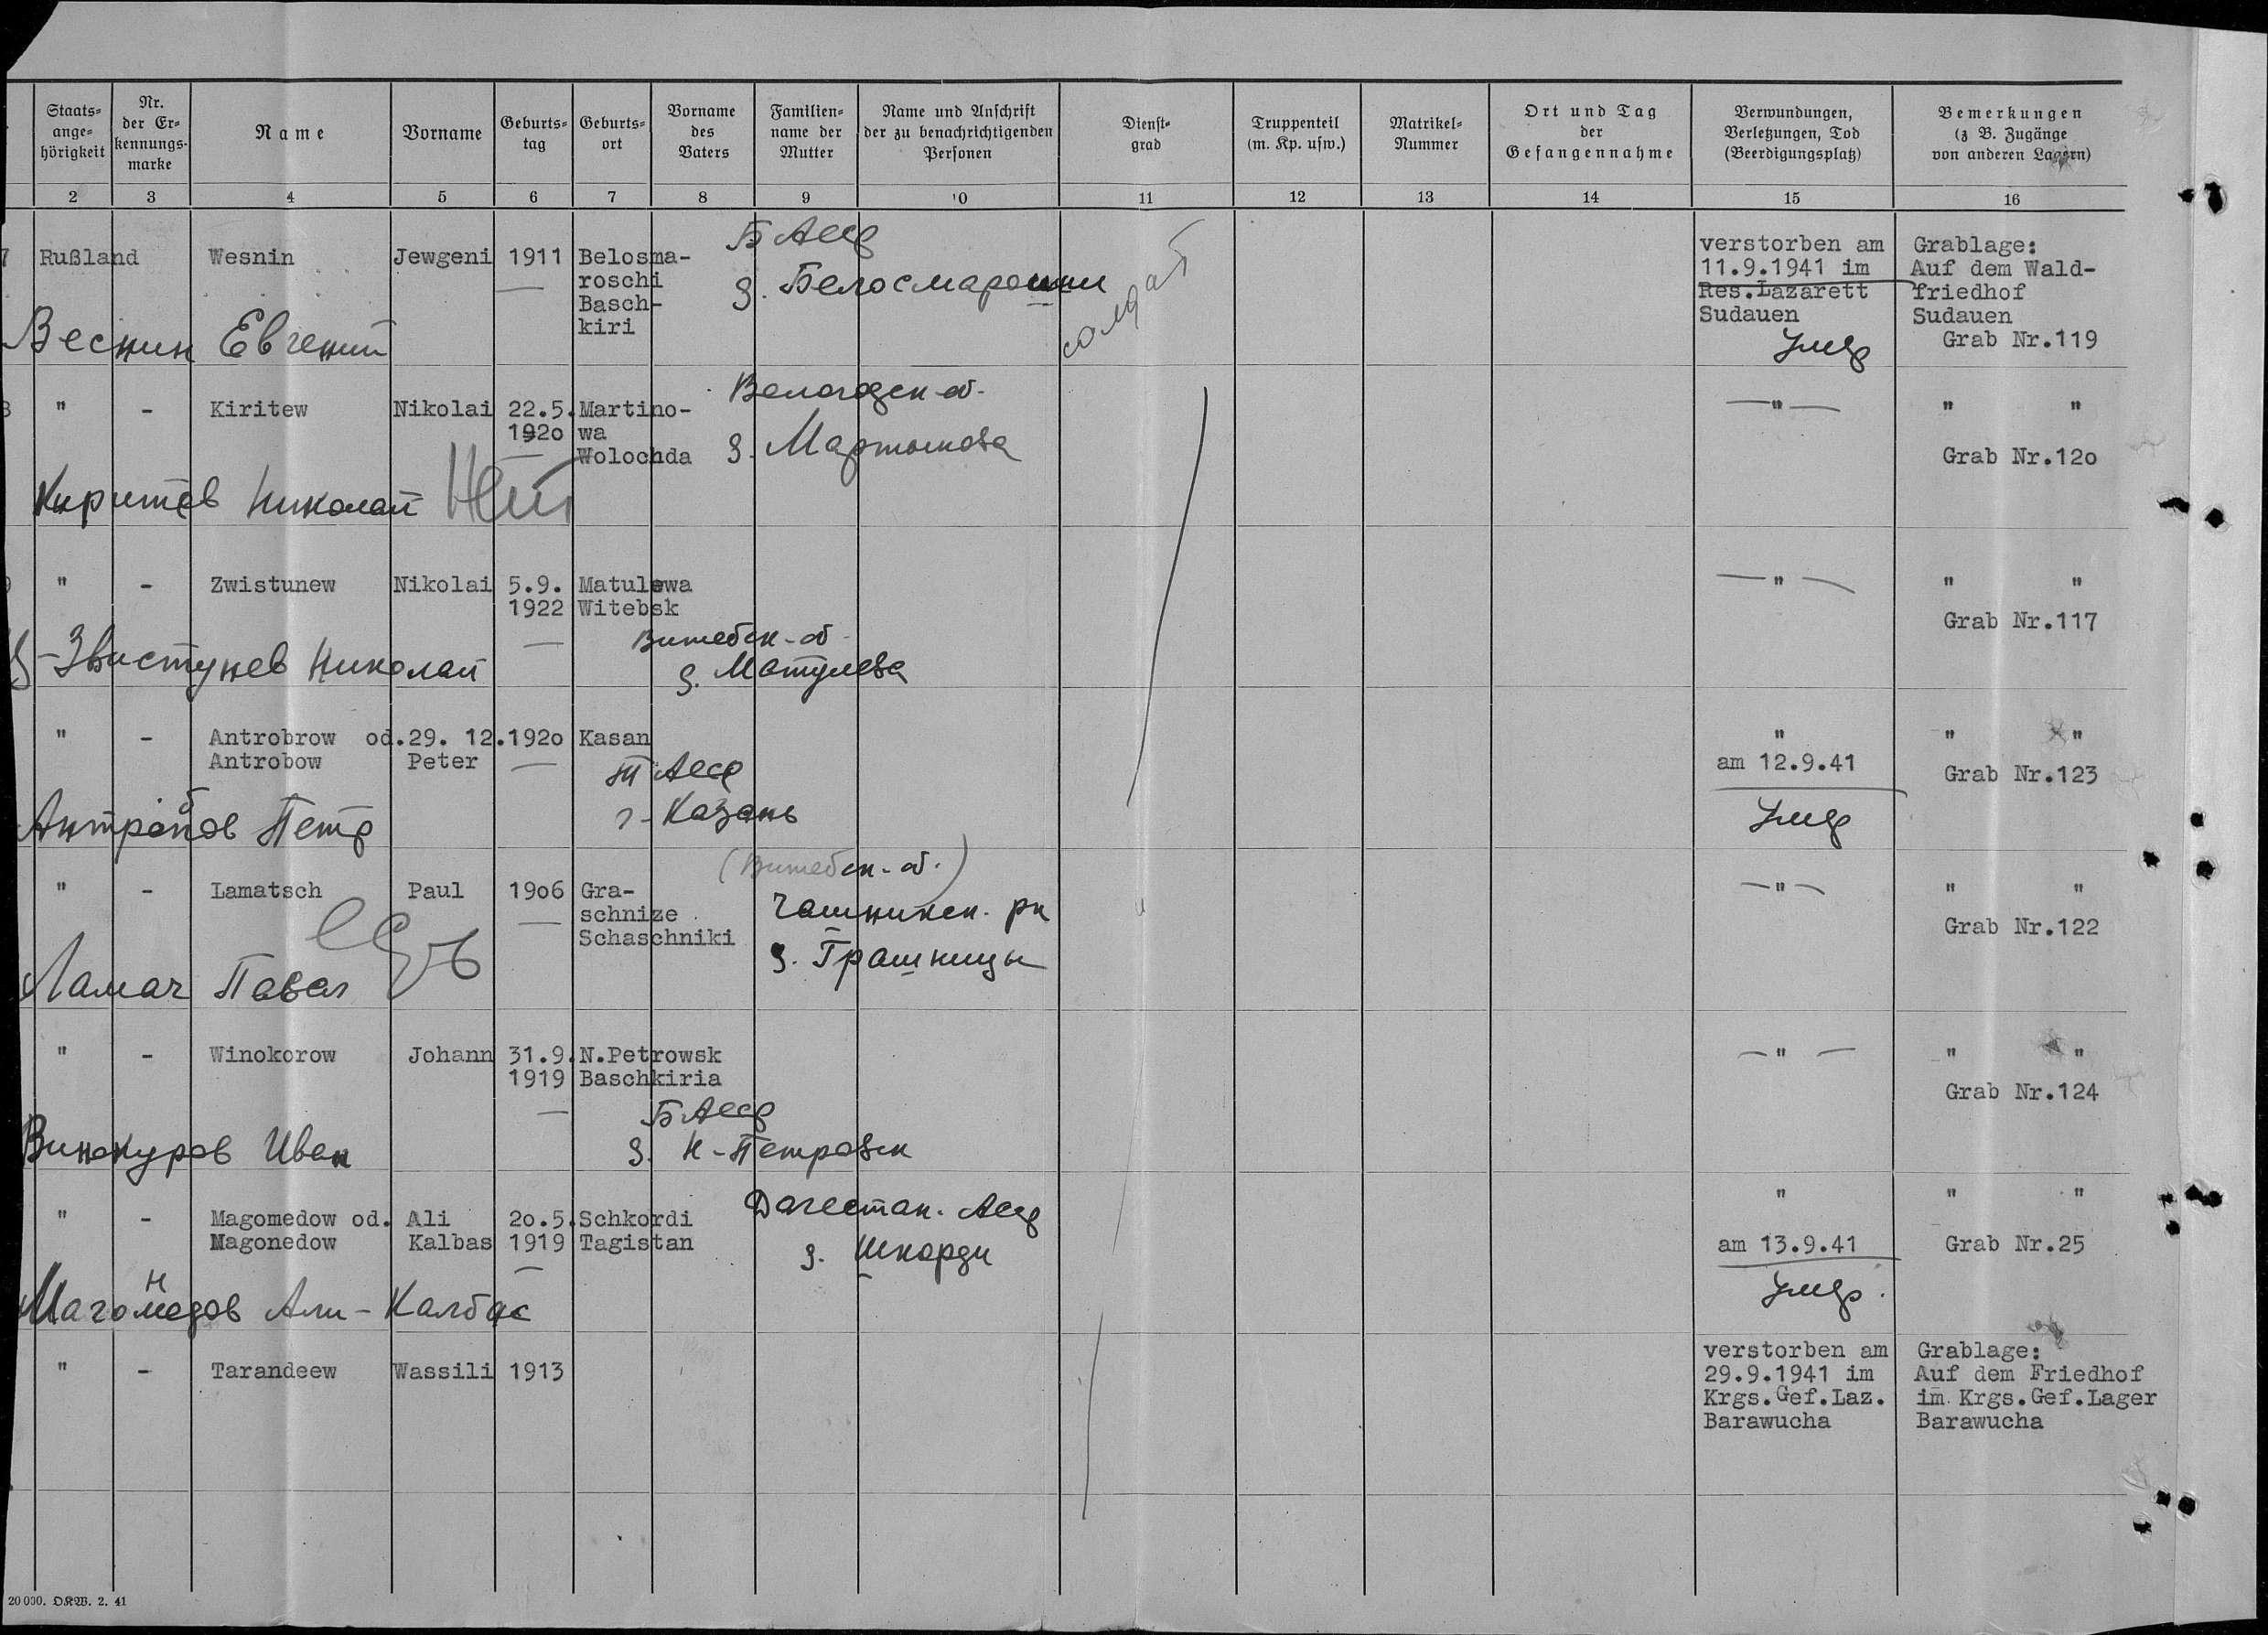 Staats-
ange-
hörigkeit
Nr.
der Er-
kennungs-
marke
Name
Vorname
Geburts-
tag
Geburts-
ort
Vorname
des
Vaters
Familien-
name der
Mutter
Name und Anschrift
der zu benachrichtigenden
Personen
Dienst-
grad
Truppenteil
(m. Kp. usw.)
Matrikel-
Nummer
Ort und Tag
der
Gefangennahme
Verwundungen,
Verletzungen, Tod
(Beerdigungsplatz)
Bemerkungen
(z B. Zugänge
von anderen Lagern)
2 3 4 5 6 7 8 9 10 11 12 13 14 15 16
7 Rußland Wesnin Jewgeni 1911
Belosma-
roschi
Basch-
kiri
Б Асср
д. Белосмарошки
солдат
verstorben am
11.9.1941 im
Res.Lazarett
Sudauen
Умер
Grablage:
Auf dem Wald-
friedhof
Sudauen
Grab Nr.119
Веснин Евгений
8 " - Kiritew Nikolai 22.5.
1920
Martino-
wa
Wolochda
Вологодск-об.
д. Мартынова
—"—
" "
Grab Nr.12o
Киритев Николай Нет
9 " - Zwistunew Nikolai 5.9.
1922
Matulewa
Witebsk
Витебск-об.
д. Матулева
—"—
" "
Grab Nr.117
Звистунев Николай
" - Antrobrow od. 29. 12.192o Kasan
Antrobow Peter
Т Асср
г-Казань
"
am 12.9.41
Умер
" "
Grab Nr.123
б
Антропов Петр
" - Lamatsch Paul 19o6
Gra-
schnize
Schaschniki
(Витебск-об.)
Чашникск. рн
д. Грашницы
"
—"—
" "
Grab Nr.122
Ламач Павел есть
" - Winokorow Johann 31.9.
1919
N.Petrowsk
Baschkiria
Б Асср
д. Н-Петровск
—"—
" "
Grab Nr.124
Винокуров Иван
" - Magomedow od. Ali 2o.5. Schkordi
Magonedow Kalbas 1919 Tagistan
Дагестан. Асср
д. Шкорди
"
am 13.9.41
Умер.
" "
Grab Nr.25
н
Магомедов Али-Калбас
" - Tarandeew Wassili 1913
verstorben am
29.9.1941 im
Krgs.Gef.Laz.
Barawucha
Grablage:
Auf dem Friedhof
im Krgs.Gef.Lager
Barawucha
20 000. OKW. 2. 41